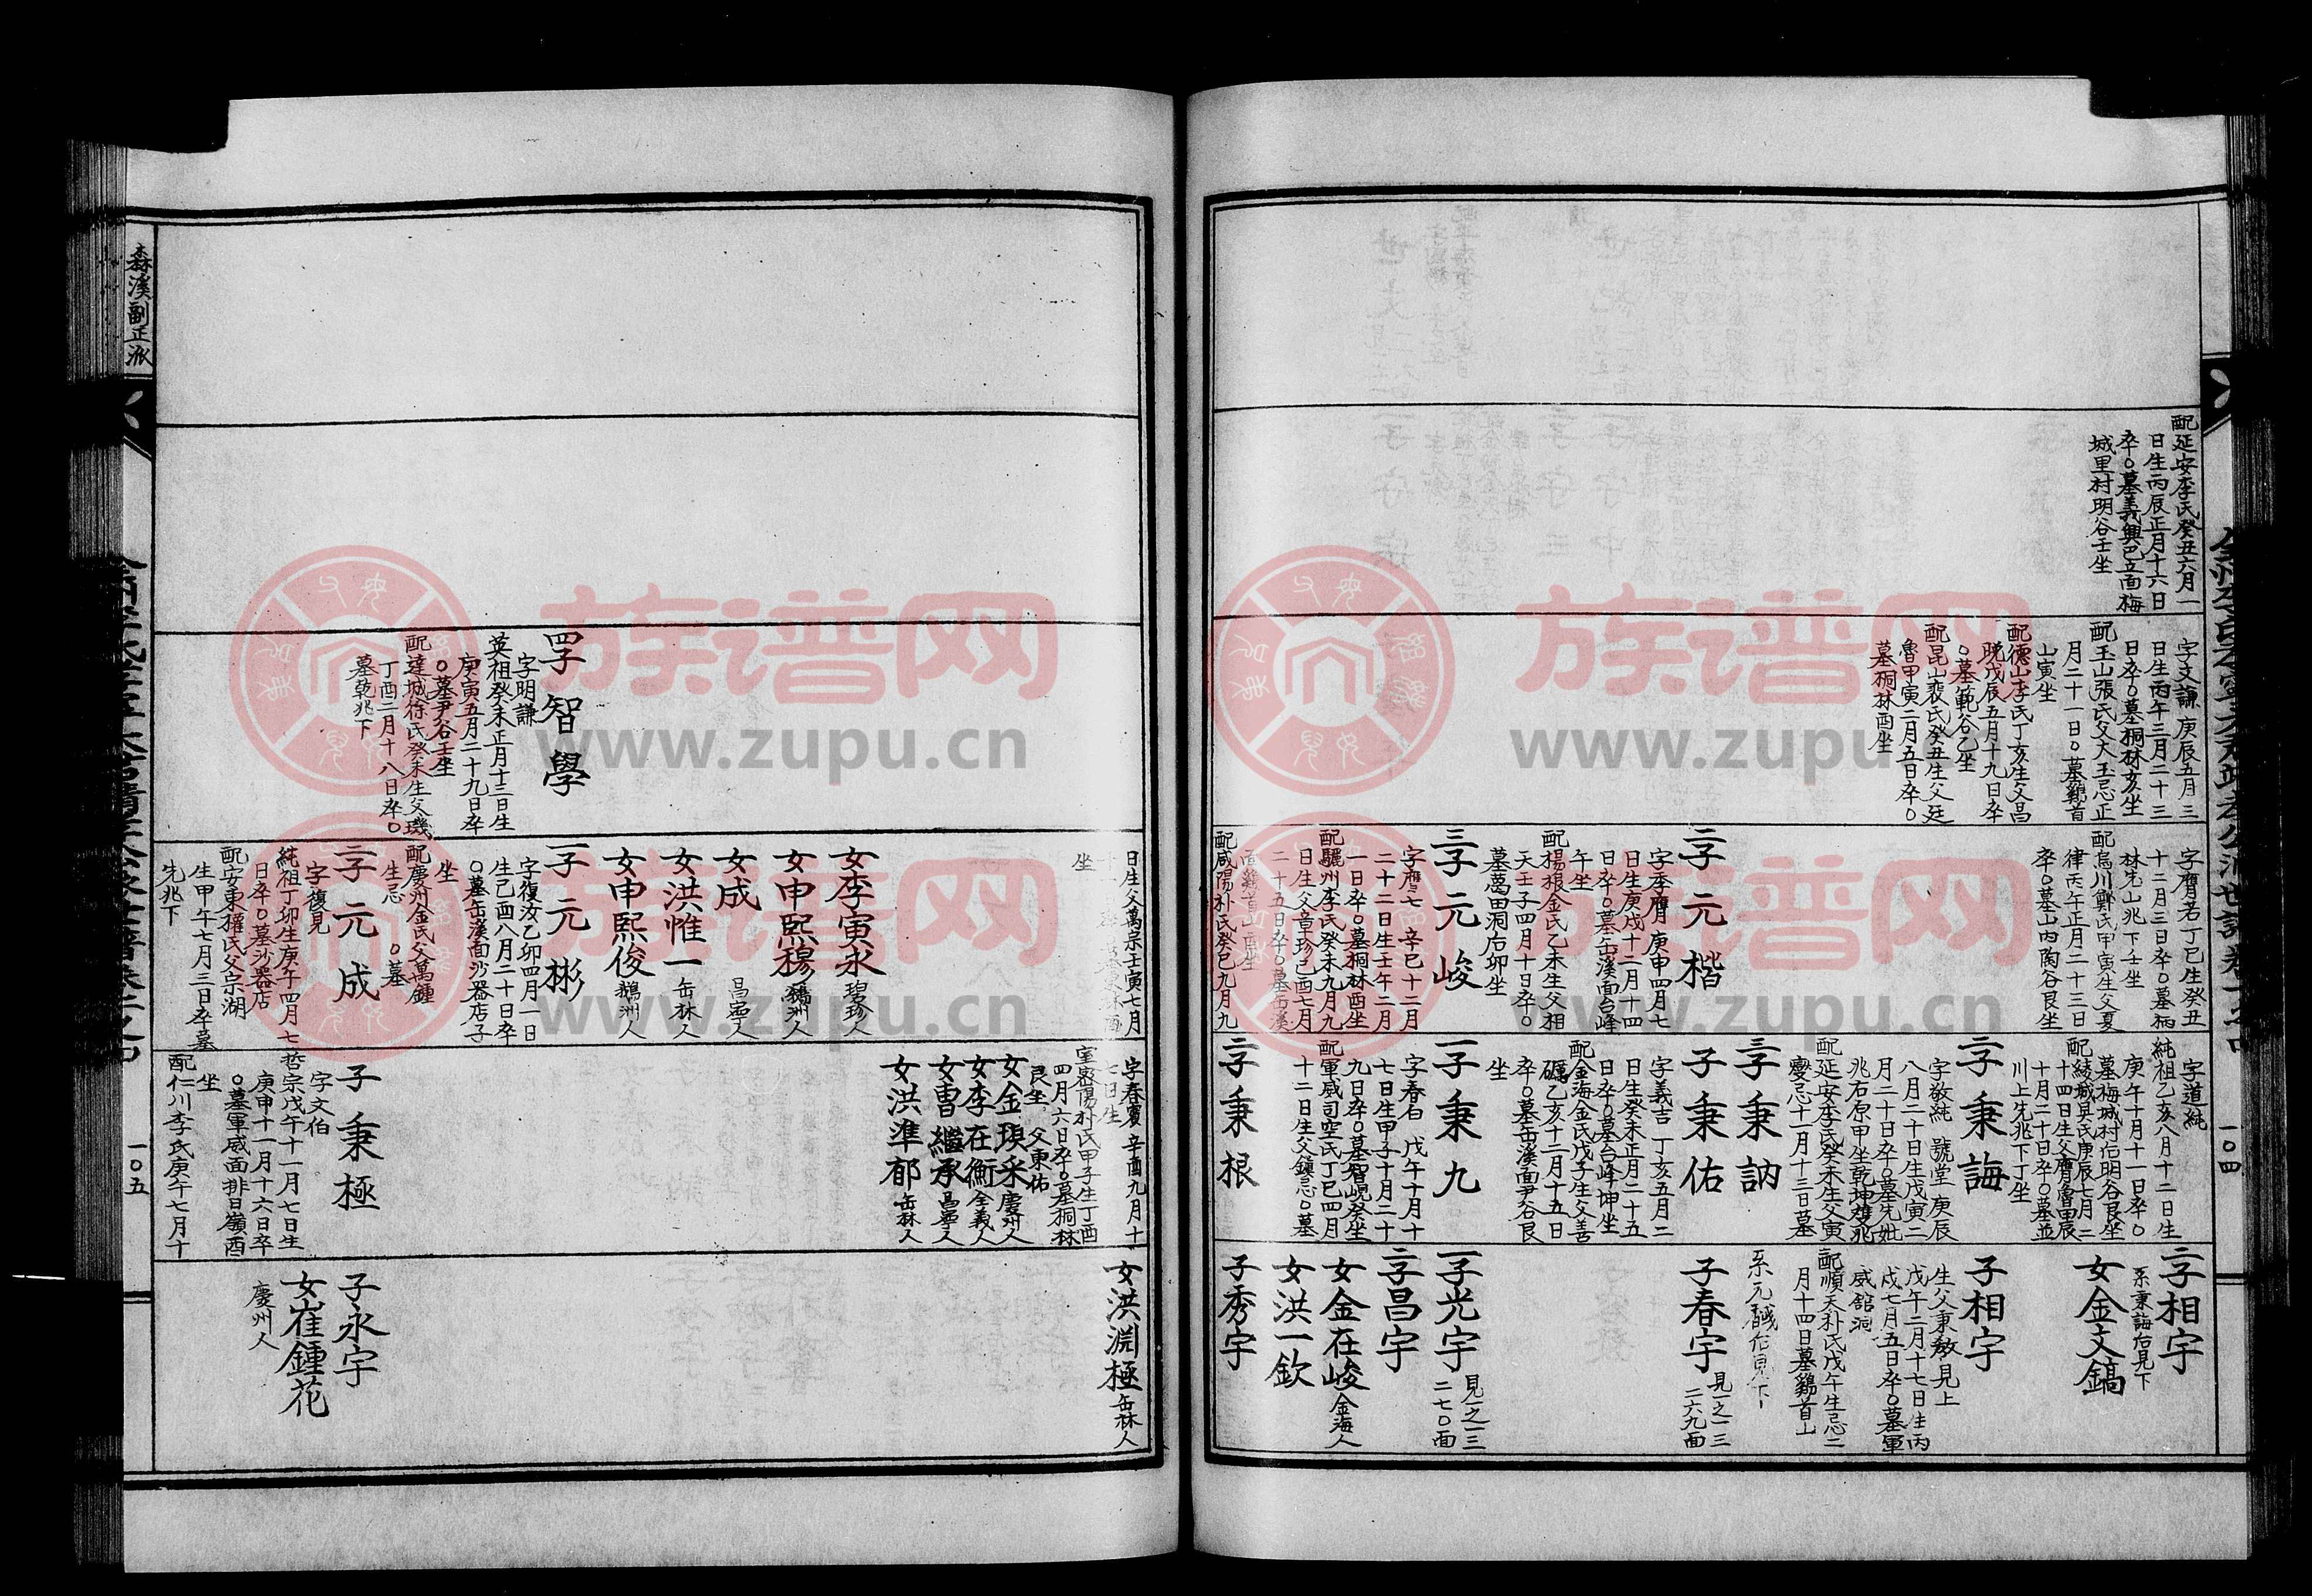 配延安李氏癸丑六月一
日生丙辰正月十六日
卒○墓義興邑立面梅
城里村明谷壬坐
字文謙 庚辰五月三
日生丙午三月二十三
日卒○墓桐林亥坐
配玉山張氏父大玉忌正
月二十一日○墓鷄首
山寅坐
配德山李氏丁亥生父昌
晩戊辰五月十九日卒
○墓範谷乙坐
配昆山裵氏癸丑生父廷
魯甲寅二月五日卒○
墓桐林酉坐
字膺若丁巳生癸丑
十二月三日卒○墓柄
林先山兆下壬坐
配烏川鄭氏甲寅生父夏
律丙午正月二十三日
卒○墓山内陶谷艮坐
二子元楷
字季膺 庚申四月七
日生庚戌十二月十四
日卒○墓缶溪面台峰
午坐
配楊根金氏乙未生父相
天壬子四月十日卒○
墓萬田洞后卯坐
三子元峻
字膺七 辛巳十二月
二十二日生壬午二月
一日卒○墓桐林酉坐
配驪州李氏癸未九月九
日生父章珍己酉七月
二十五日卒○墓缶溪
面鷄首山酉坐
配咸陽朴氏癸巳九月九
字道純
純祖乙亥八月十二日生
庚午十月十一日卒○
墓梅城村后明谷艮坐
配綾城具氏庚辰七月二
十四日生父膺魯甲辰
十月二十日卒○墓並
川上先兆下丁坐
二子秉誨
字敬純 號堂 庚辰
八月二十日生戊寅二
月二十日卒○墓先妣
兆右原甲坐乾坤雙兆
配延安李氏癸未生父寅
慶忌十一月十三日墓
三子秉訥
子秉佑
字義吉 丁亥五月二
日生癸未正月二十五
日卒○墓台峰坤坐
配金海金氏戊子生父善
礪乙亥十二月十五日
卒○墓缶溪面尹谷艮
坐
一子秉九
字春白 戊午十月十
七日生甲子十月二十
九日卒○墓智峴癸坐
配軍威司空氏丁巳四月
十二日生父鎭忌○墓
二子秉根
二子相宇
系秉誨后見下
女金文鎬
子相宇
生父秉敎見上
戊午二月十七日生丙
戌七月五日卒○墓軍
威舘洞
配順天朴氏戊午生忌二
月十四日墓鷄首山
系元馘后見下
子春宇 見一之一三
二六九面
一子光宇 見一之一三
二七○面
二子昌宇
女金在峻 金海人
女洪一欽
子秀宇
一○四
四子智學
字明謙
英祖癸未正月十三日生
庚寅五月二十九日卒
○墓尹谷壬坐
配達城徐氏癸未生父璣
丁酉二月十八日卒○
墓乾兆下
日生父萬宗壬寅七月
坐
女李寅永 碧珍人
女申熙穆 鵝洲人
女成 昌寧人
女洪惟一 缶林人
女申熙俊 鵝洲人
一子元彬
字復汝乙卯四月一日
生己酉八月二十日卒
○墓缶溪面沙器店子
坐
配慶州金氏父萬鍾
生忌 ○墓
二子元成
字復見
純祖丁卯生庚午四月七
日卒○墓沙器店
配安東權氏父宗湖
生甲午七月三日卒墓
先兆下
字春賓 辛酉九月十
七日生
室密陽朴氏甲子生丁酉
四月六日卒○墓桐林
艮坐 父東佑
女金瑱采 慶州人
女李在衡 全義人
女曺繼承 昌寧人
女洪準郁 缶林人
子秉極
字文伯
哲宗戊午十一月七日生
庚申十一月十六日卒
○墓軍威面排目嶺酉
坐
配仁川李氏庚午七月十
女洪淵極 缶林人
子永宇
女崔鍾花
慶州人
森溪副正派
一○五
族谱网
www.zupu.cn
族谱网
www.zupu.cn
族谱网
www.zupu.cn
族谱网
www.zupu.cn